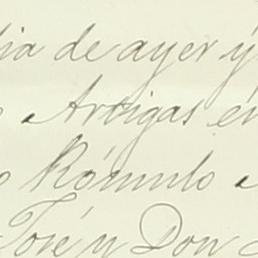 dia de ayer y
Artigas en
Rómulo
José y Don